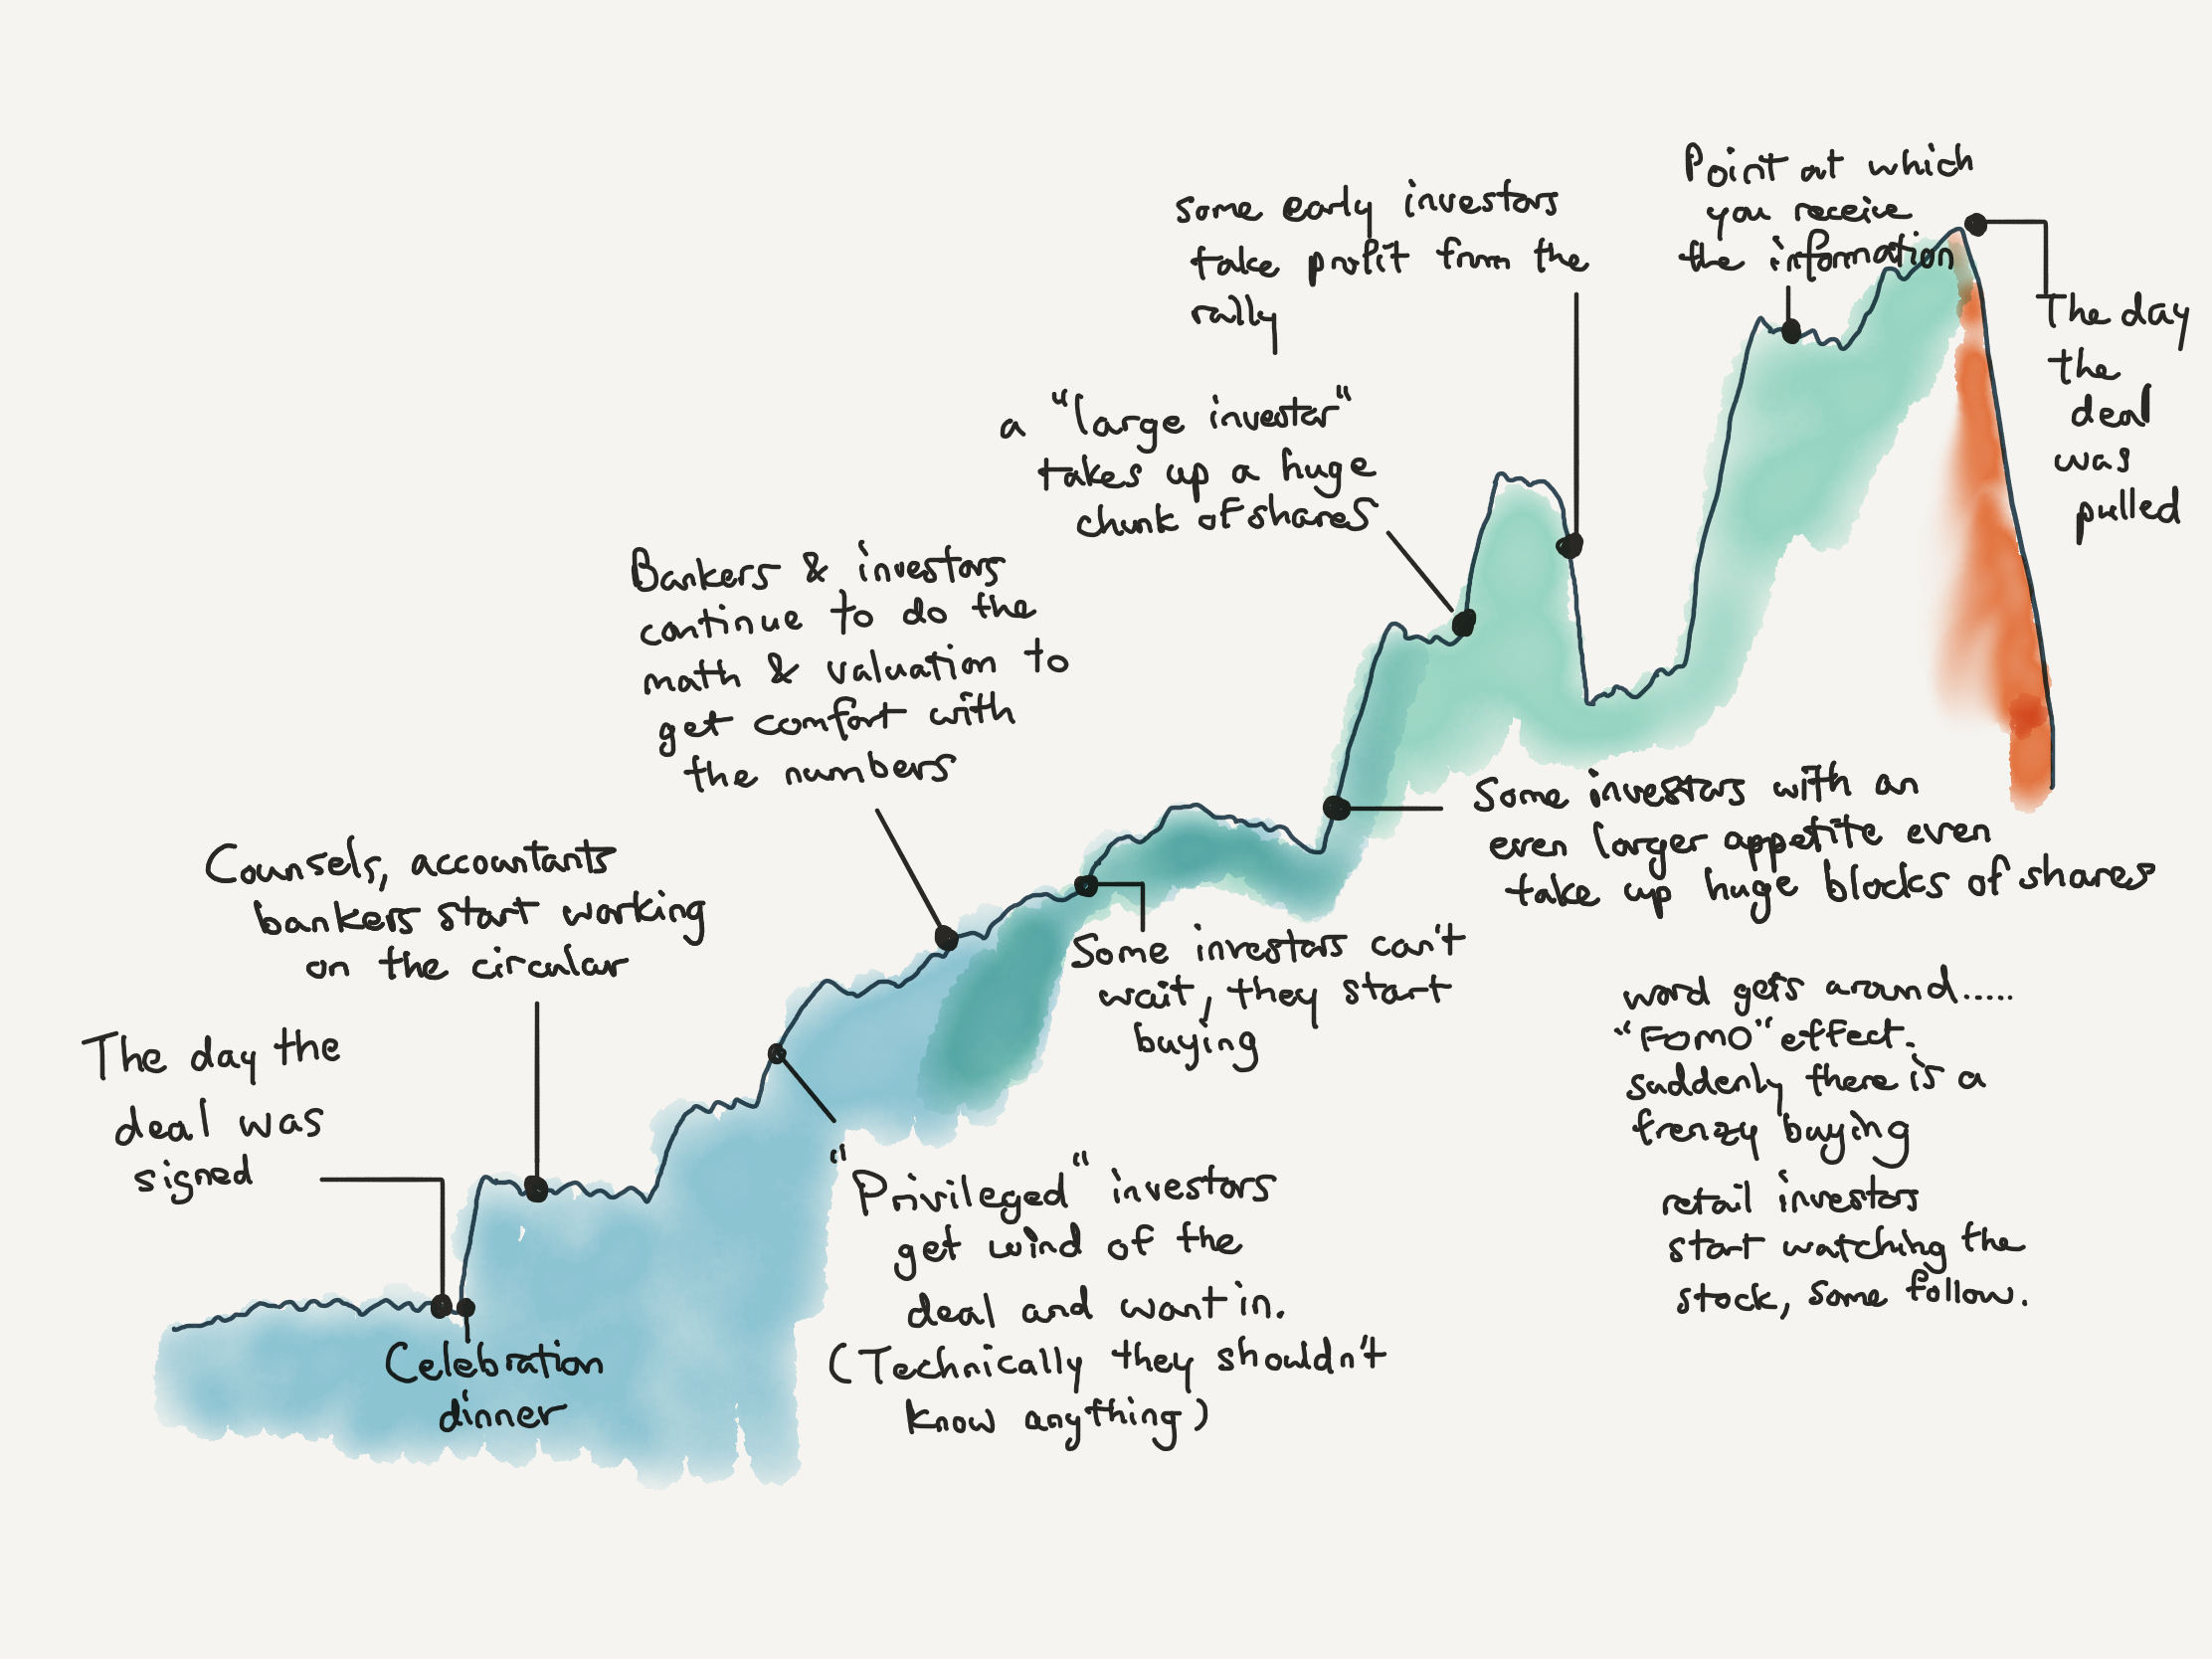 The day the
deal was
signed
Celebration
dinner
Counsels, accountants
bankers start working
on the circular
"Privileged" investors
get wind of the
deal and want in.
(Technically they shouldn't
know anything)
Bankers & investors
continue to do the
math & valuation to
get comfort with
the numbers
Some investors can't
wait, they start
buying
Some investors with an
even larger appetite even
take up huge blocks of shares
word gets around.....
"FOMO" effect.
suddenly there is a
frenzy buying
retail investors
start watching the
stock, some follow.
a "large investor"
takes up a huge
chunk of shares
some early investors
take profit from the
rally
Point at which
you receive
the information
The day
the
deal
was
pulled